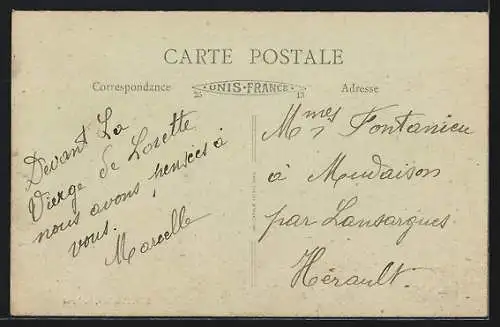 CARTE POSTALE
Correspondance
UNIS-FRANCE
Adresse
Devant La
Vierge de Lorette
nous avons pensées à
vous.
Marcelle
Mmes Fontanieu
à Mudaison
par Lansargues
Hérault.